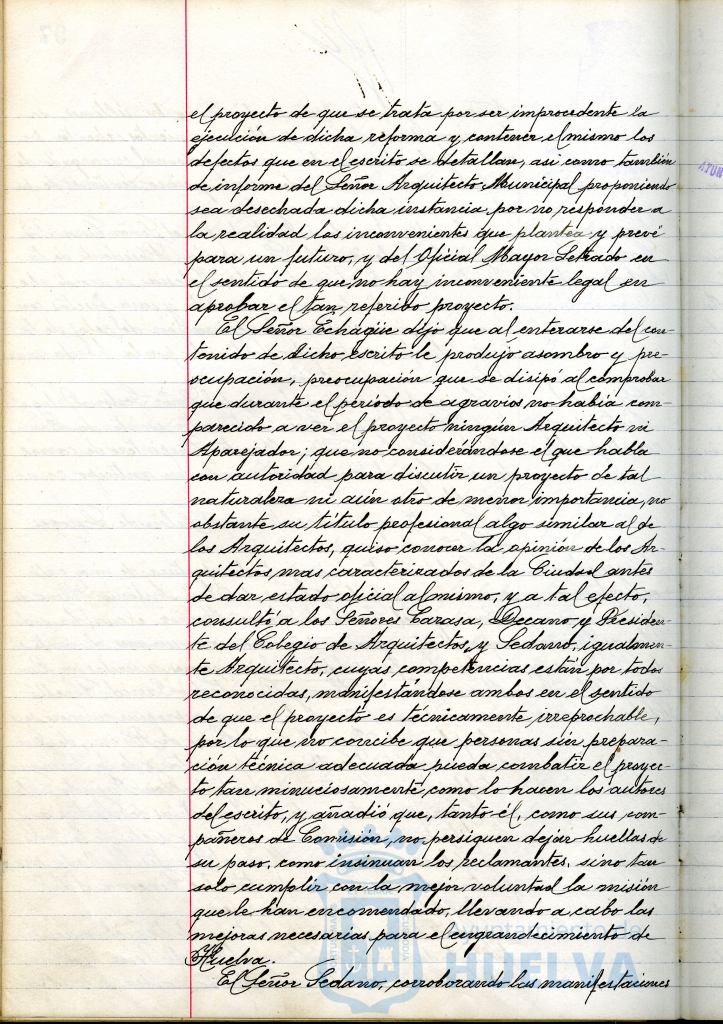 el proyecto de que se trata por ser improcedente la
ejecución de dicha reforma y contener el mismo los
defectos que en el escrito se detallan, asi como tambien
de informe del Señor Arquitecto Municipal proponiendo
sea desechada dicha instancia por no responder a
la realidad los inconvenientes que plantea y prevé
para un futuro, y del Oficial Mayor Letrado en
el sentido de que no hay inconveniente legal en
aprobar el tan referido proyecto.
El Señor Echagüe dijo que al enterarse del con-
tenido de dicho escrito le produjo asombro y pre-
ocupación, preocupación que se disipó al comprobar
que durante el periodo de agravios no habia com-
parecido a ver el proyecto ningún Arquitecto ni
Aparejador; que no considerándose el que habla
con autoridad para discutir un proyecto de tal
naturaleza ni aún otro de menor importancia, no
obstante su titulo profesional algo similar al de
los Arquitectos, quiso conocer la opinión de los Ar-
quitectos mas caracterizados de la Ciudad antes
de dar estado oficial al mismo, y a tal efecto,
consultó a los Señores Carasa, Decano y Presiden-
te del Colegio de Arquitectos, y Sedano, igualmen-
te Arquitecto, cuyas competencias estan por todos
reconocidas, manifestándose ambos en el sentido
de que el proyecto es técnicamente irreprochable,
por lo que no concibe que personas sin prepara-
ción técnica adecuada pueda combatir el proyec-
to tan minuciosamente como lo hacen los autores
del escrito, y añadió que, tanto él, como sus com-
pañeros de Comisión, no persiguen dejar huellas de
su paso, como insinuan los reclamantes, sino tan
solo cumplir con la mejor voluntad la misión
que le han encomendado, llevando a cabo las
mejoras necesarias para el engrandecimiento de
Huelva.
El Señor Sedano, corroborando las manifestaciones
Ayuntamiento de
HUELVA